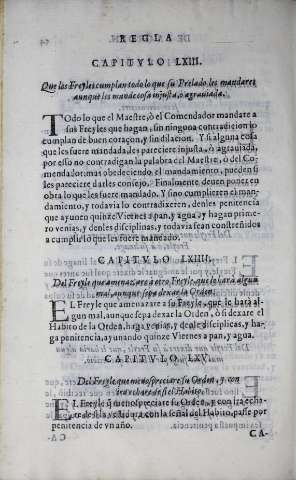 REGLA
CAPITVLO LXIII.
Que los Freyles cumplan todo lo que su Prelado les mandare,
aunque les mande cosa injusta, ò agrauiada.
Todo lo que el Maestre, ò el Comendador mandare a
sus Freyles que hagan, sin ninguna contradicion lo
cumplan de buen coraçon, y sin dilacion. Y si alguna cosa
que les fuere mãdada, les pareciere injusta, ò agrauiada,
por esso no contradigan la palabra del Maestre, ò del Co-
mendador, mas obedeciendo el mandamiento, pueden si
les pareciere darles consejo. Finalmente deuen poner en
obra lo que les fuere mandado. Y si no cumplieren el man-
damiento, y todavia lo contradixeren, denles penitencia
que ayunen quinze Viernes a pan, y agua, y hagan prime-
ro venias, y denles disciplinas, y todavia sean constreñidos
a cumplir lo que les fuere mandado.
CAPITVLO LXIIII.
Del Freyle que amenazare à otro Freyle, que le harà algun
mal, aunque sepa dexar la Orden.
EL Freyle que amenazare a su Freyle, que le harà al-
gun mal, aunque sepa dexar la Orden, ò si dexare el
Habito de la Orden, haga venias, y denle disciplicas, y ha-
ga penitencia, ayunando quinze Viernes a pan, y agua.
CAPITVLO LXV.
Del Freyle que menospreciare su Orden, y con
ira echare de si el Habito.
EL Freyle q̃ menospreciare su Orden, y con ira echa-
re de si la vestidura con la señal del Habito, passe por
penitencia de vn año.
CA-